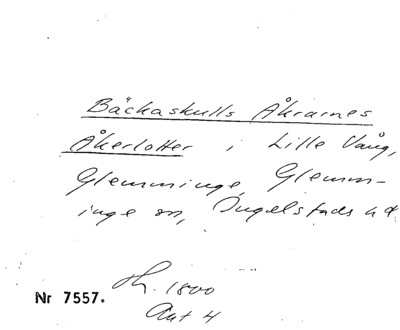 Bäckaskulls Åkrarnes
Åkerlotter i Lille Vång,
Glemminge, Glemm-
inge sn, Ingelstads hd
Nr 7557.
1800
Akt 4